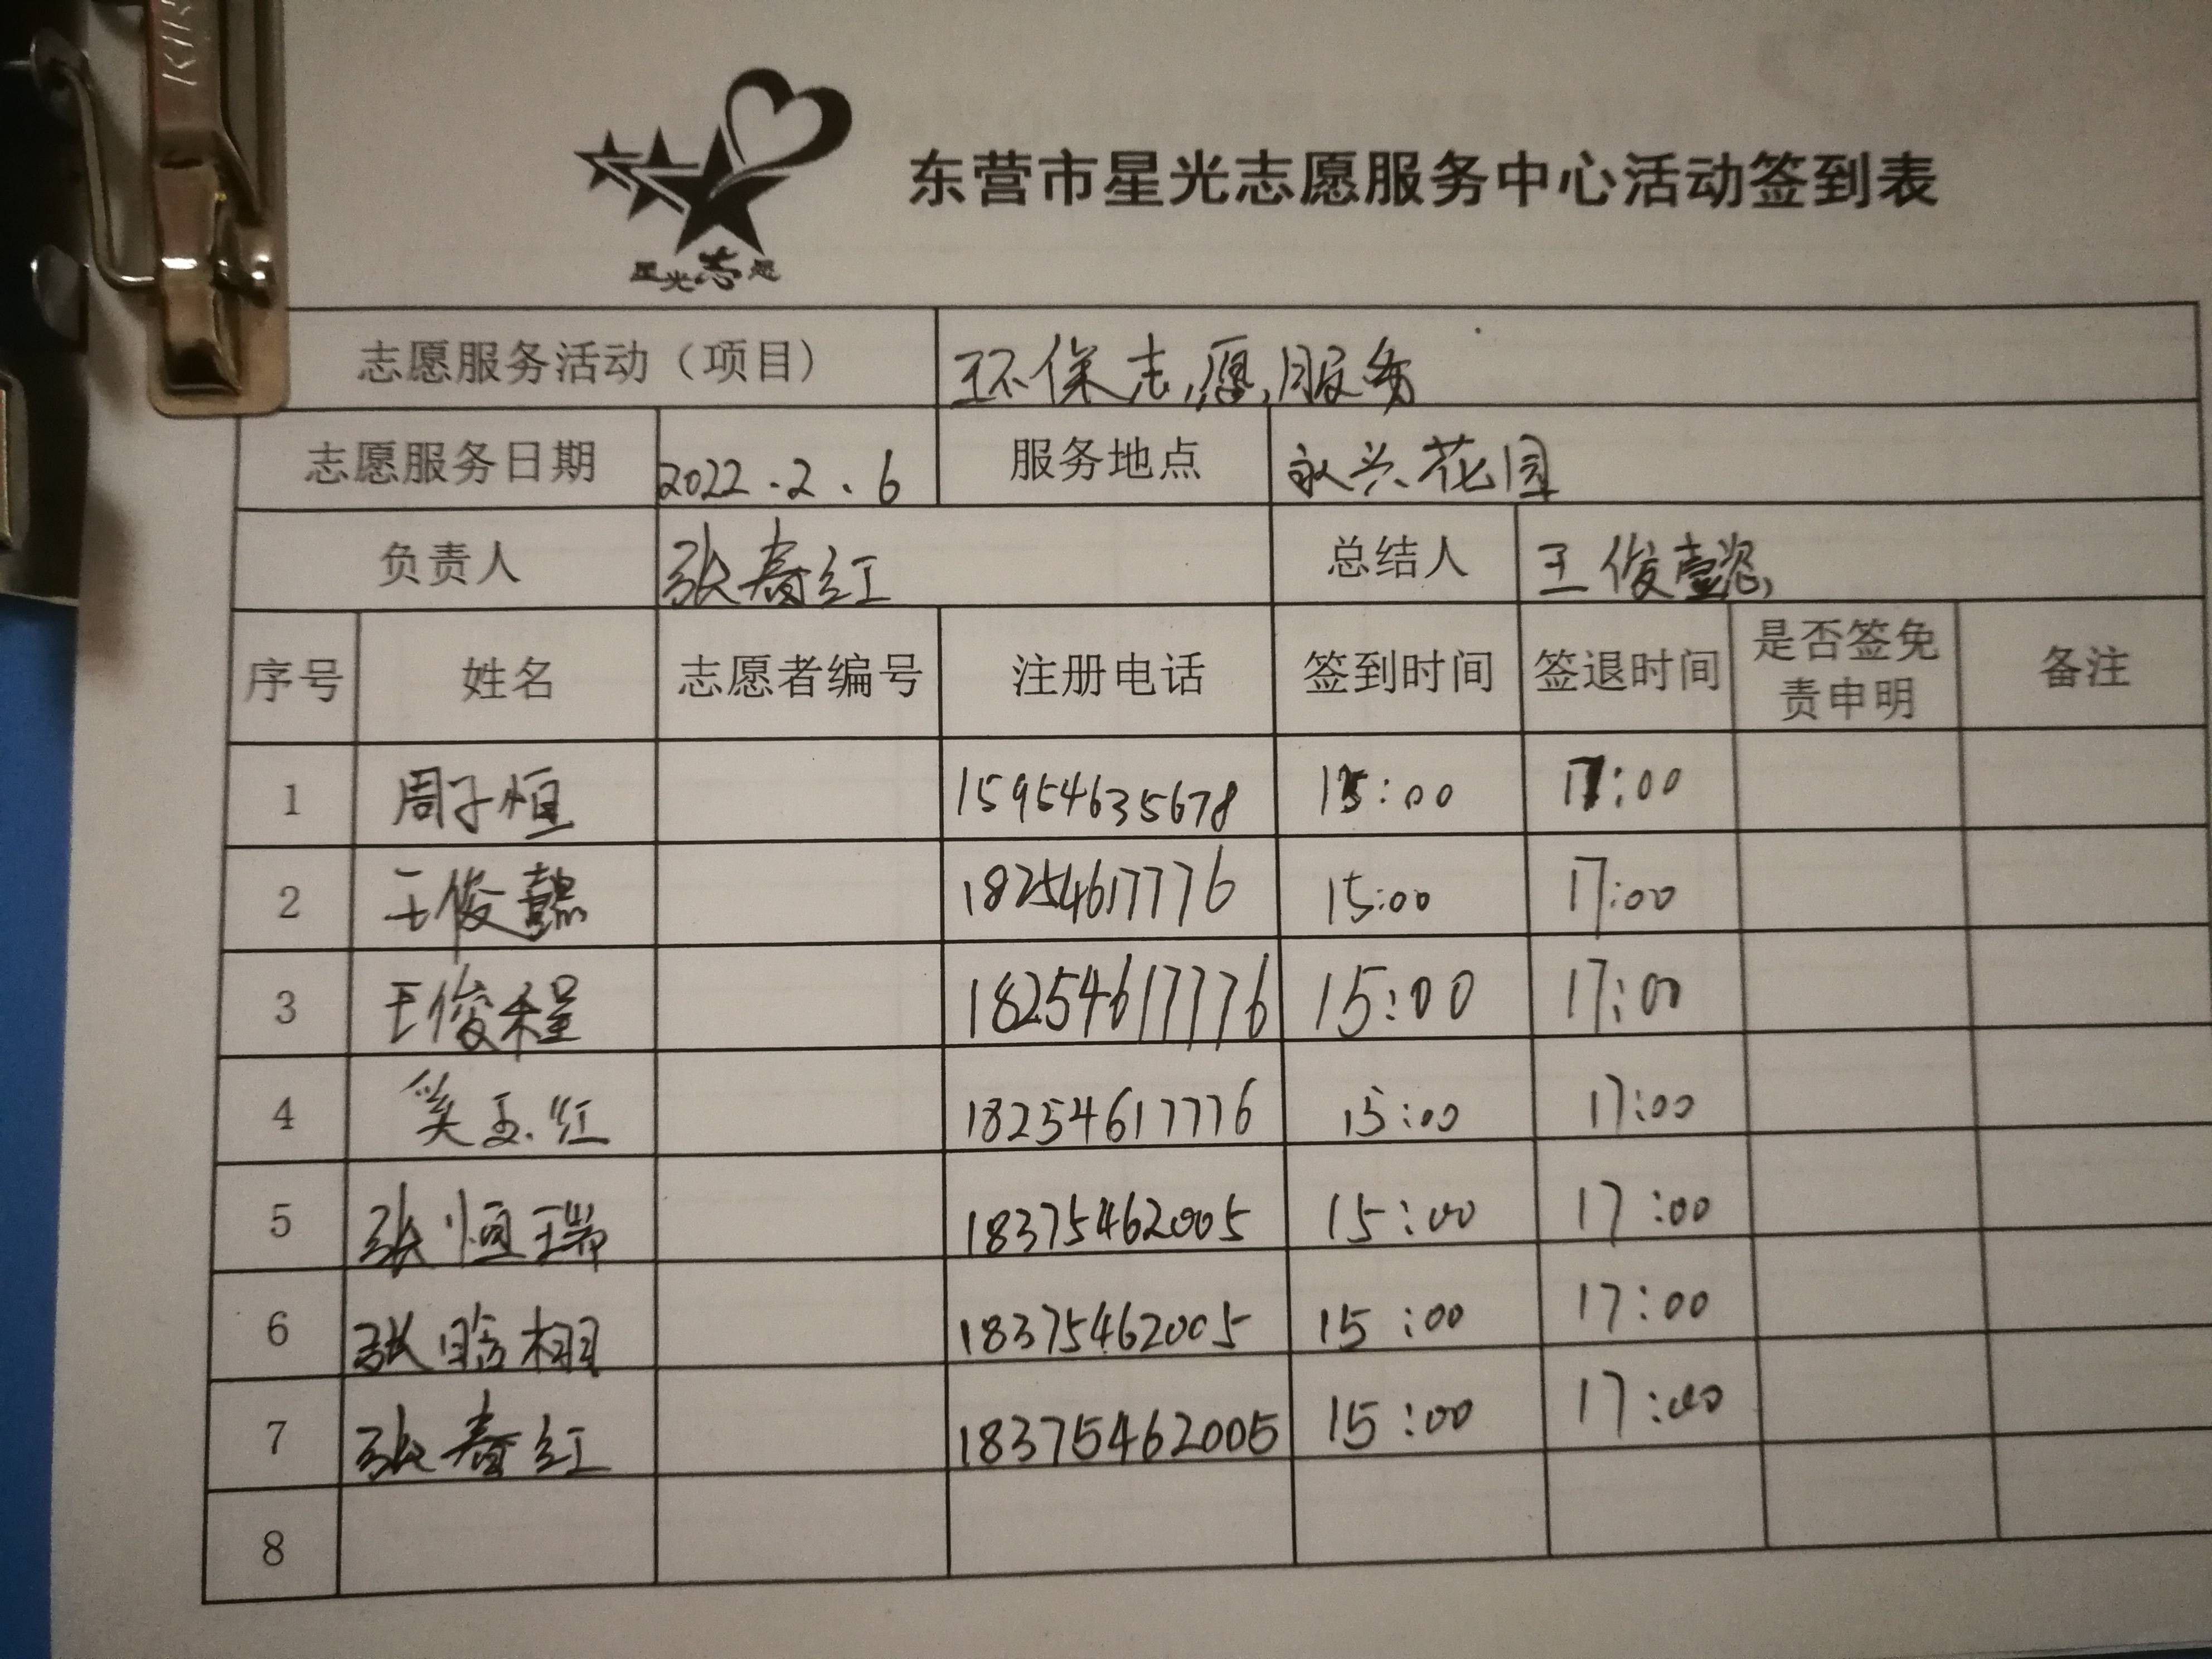 KIN
东营市星光志愿服务中心活动签到表
星光志愿
志愿服务活动（项目） 环保志愿服务
志愿服务日期 2022.2.6 服务地点 永兴花园
负责人 张春红 总结人 王俊懿
序号 姓名 志愿者编号 注册电话 签到时间 签退时间 是否签免责申明 备注
1 周子恒 15954635678 15:00 17:00
2 王俊懿 18254617776 15:00 17:00
3 王俊程 18254617776 15:00 17:00
4 奚玉红 18254617776 15:00 17:00
5 张恒瑞 18375462005 15:00 17:00
6 张晗栩 18375462005 15:00 17:00
7 张春红 18375462005 15:00 17:00
8